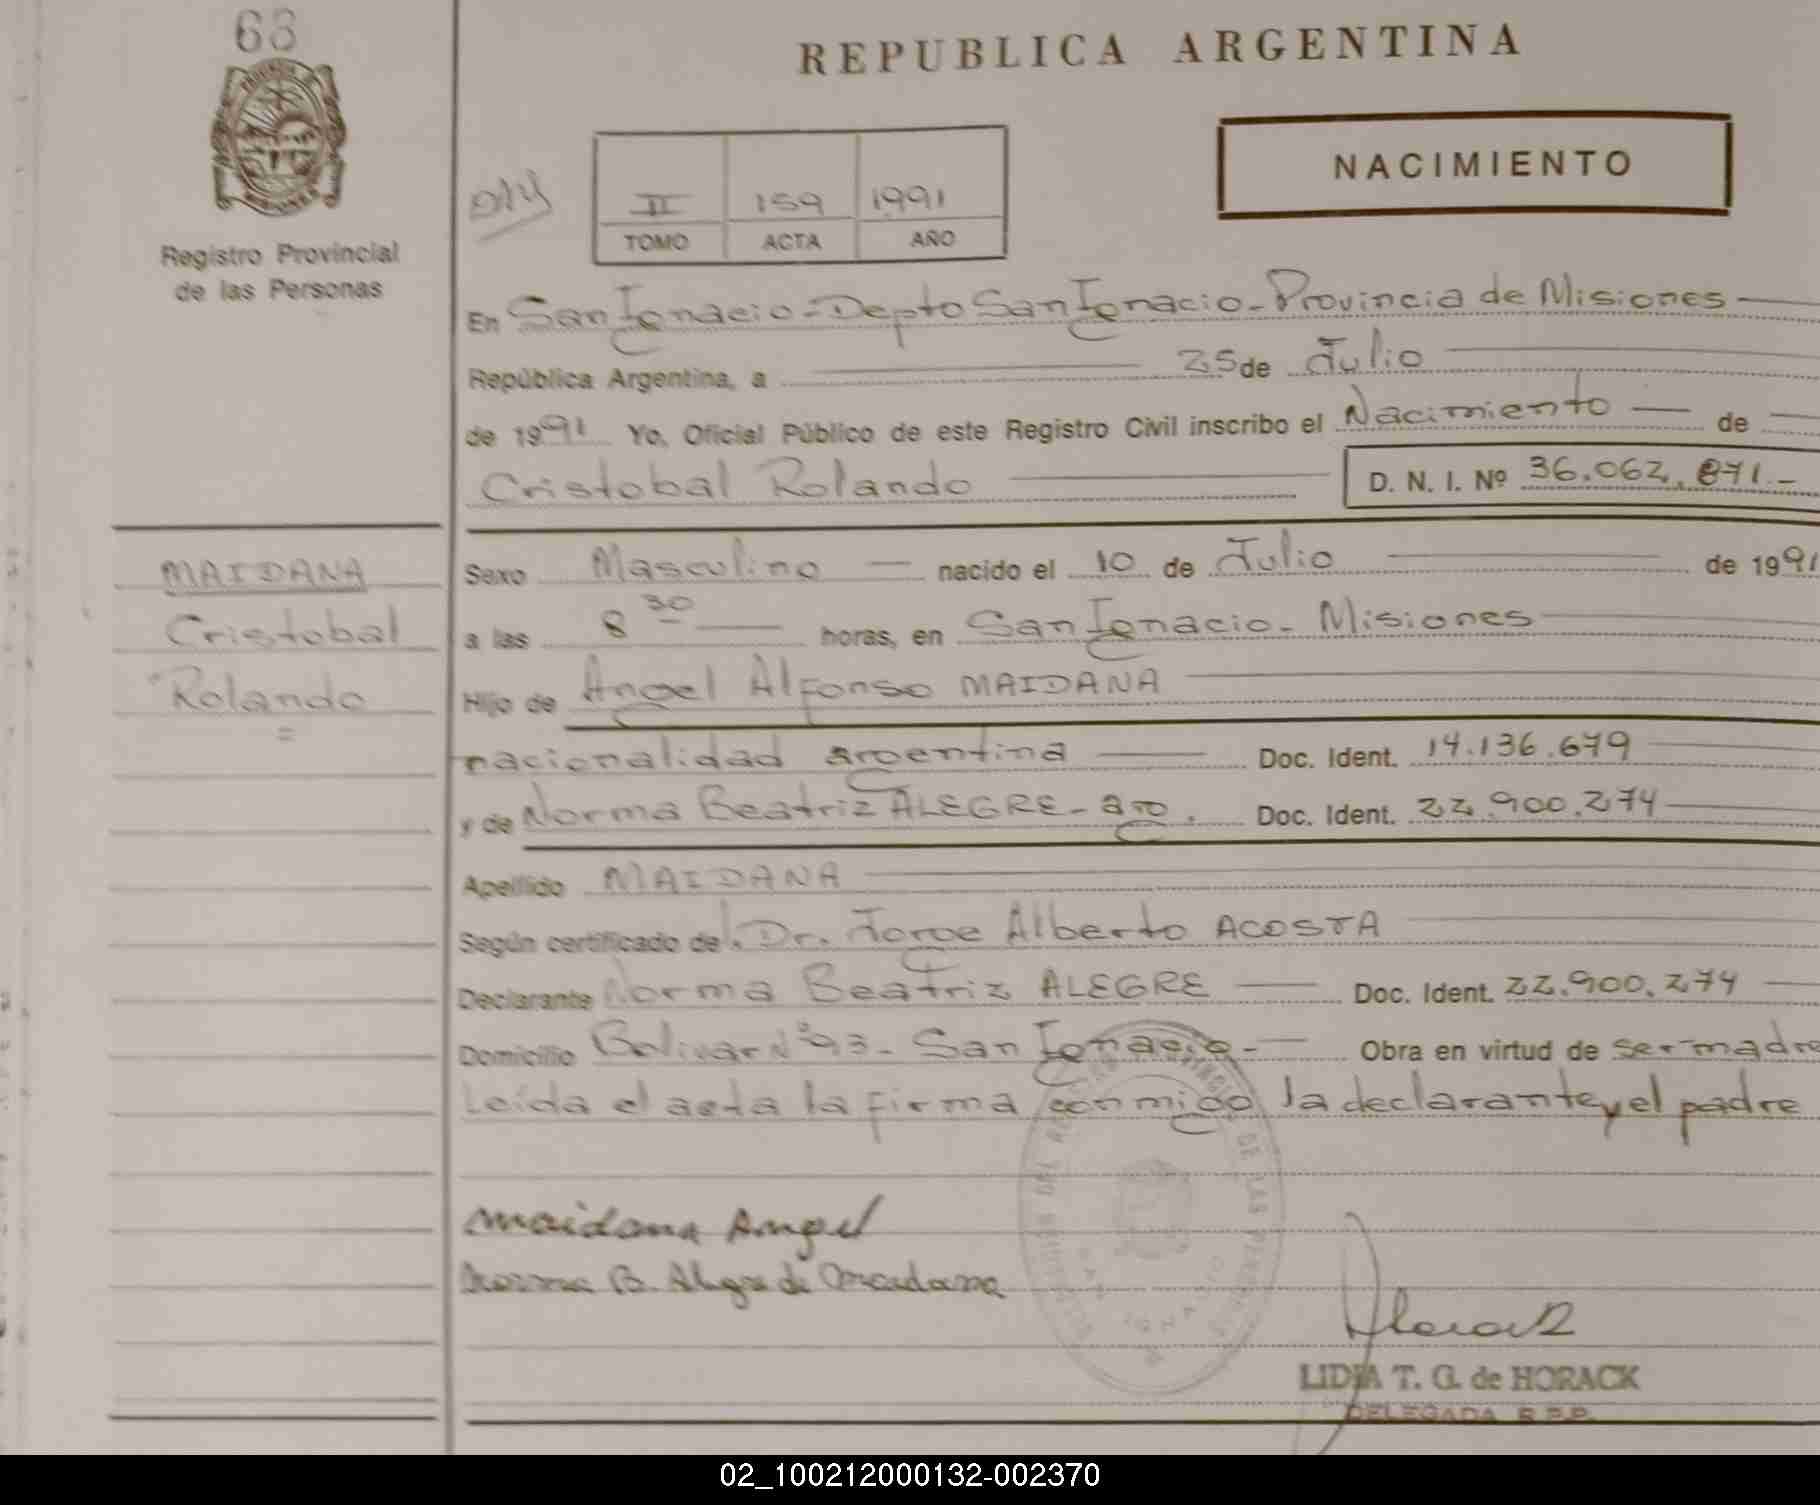 63
REPUBLICA ARGENTINA
NACIMIENTO
II 159 1991
TOMO ACTA AÑO
Registro Provincial
de las Personas
En San Ignacio - Depto San Ignacio - Provincia de Misiones
República Argentina, a 25 de Julio
de 1991 Yo, Oficial Público de este Registro Civil inscribo el Nacimiento de
Cristobal Rolando D. N. I. Nº 36.062.871.-
MAIDANA
Cristobal
Rolando
Sexo Masculino nacido el 10 de Julio de 1991
a las 8 30 horas, en San Ignacio - Misiones
Hijo de Angel Alfonso MAIDANA
nacionalidad argentina Doc. Ident. 14.136.679
y de Norma Beatriz ALEGRE - arg. Doc. Ident. 22.900.274
Apellido MAIDANA
Según certificado de Dr. Jorge Alberto ACOSTA
Declarante Norma Beatriz ALEGRE Doc. Ident. 22.900.274
Domicilio Bolivar Nº 93 - San Ignacio - Obra en virtud de ser madre
Leída el acta la firma conmigo la declarante y el padre
Maidana Angel
Norma B. Alegre de Maidana
LIDIA T. G. de HORACK
DELEGADA R.P.P.
02_100212000132-002370